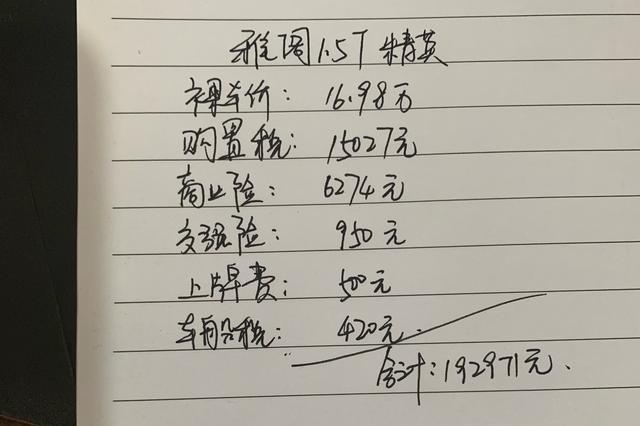 雅阁1.5T精英
裸车价：16.98万
购置税：15027元
商业险：6274元
交强险：950元
上牌费：500元
车船税：420元.
合计：192971元.